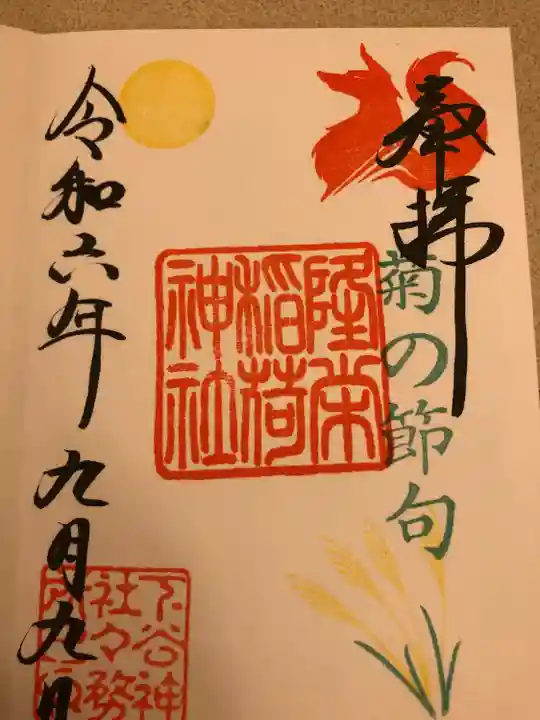 奉拝
菊の節句
隆栄
稲荷
神社
令和六年九月九日
下谷神
社々務